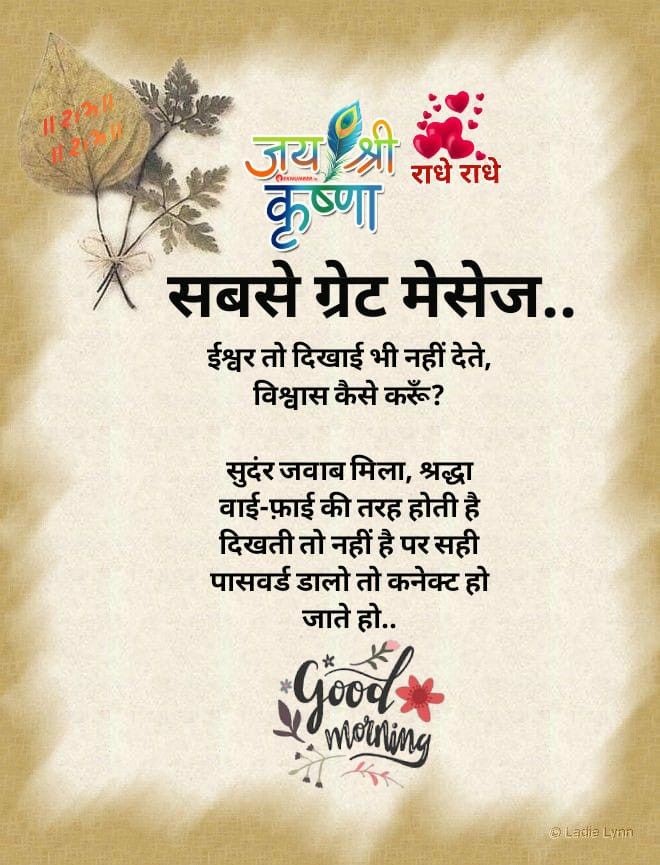 ॥ राम ॥
॥ राम ॥
जय श्री
कृष्णा
राधे राधे
सबसे ग्रेट मेसेज..
ईश्वर तो दिखाई भी नहीं देते,
विश्वास कैसे करूँ?
सुदंर जवाब मिला, श्रद्धा
वाई-फ़ाई की तरह होती है
दिखती तो नहीं है पर सही
पासवर्ड डालो तो कनेक्ट हो
जाते हो..
Good
morning
© Ladia Lynn